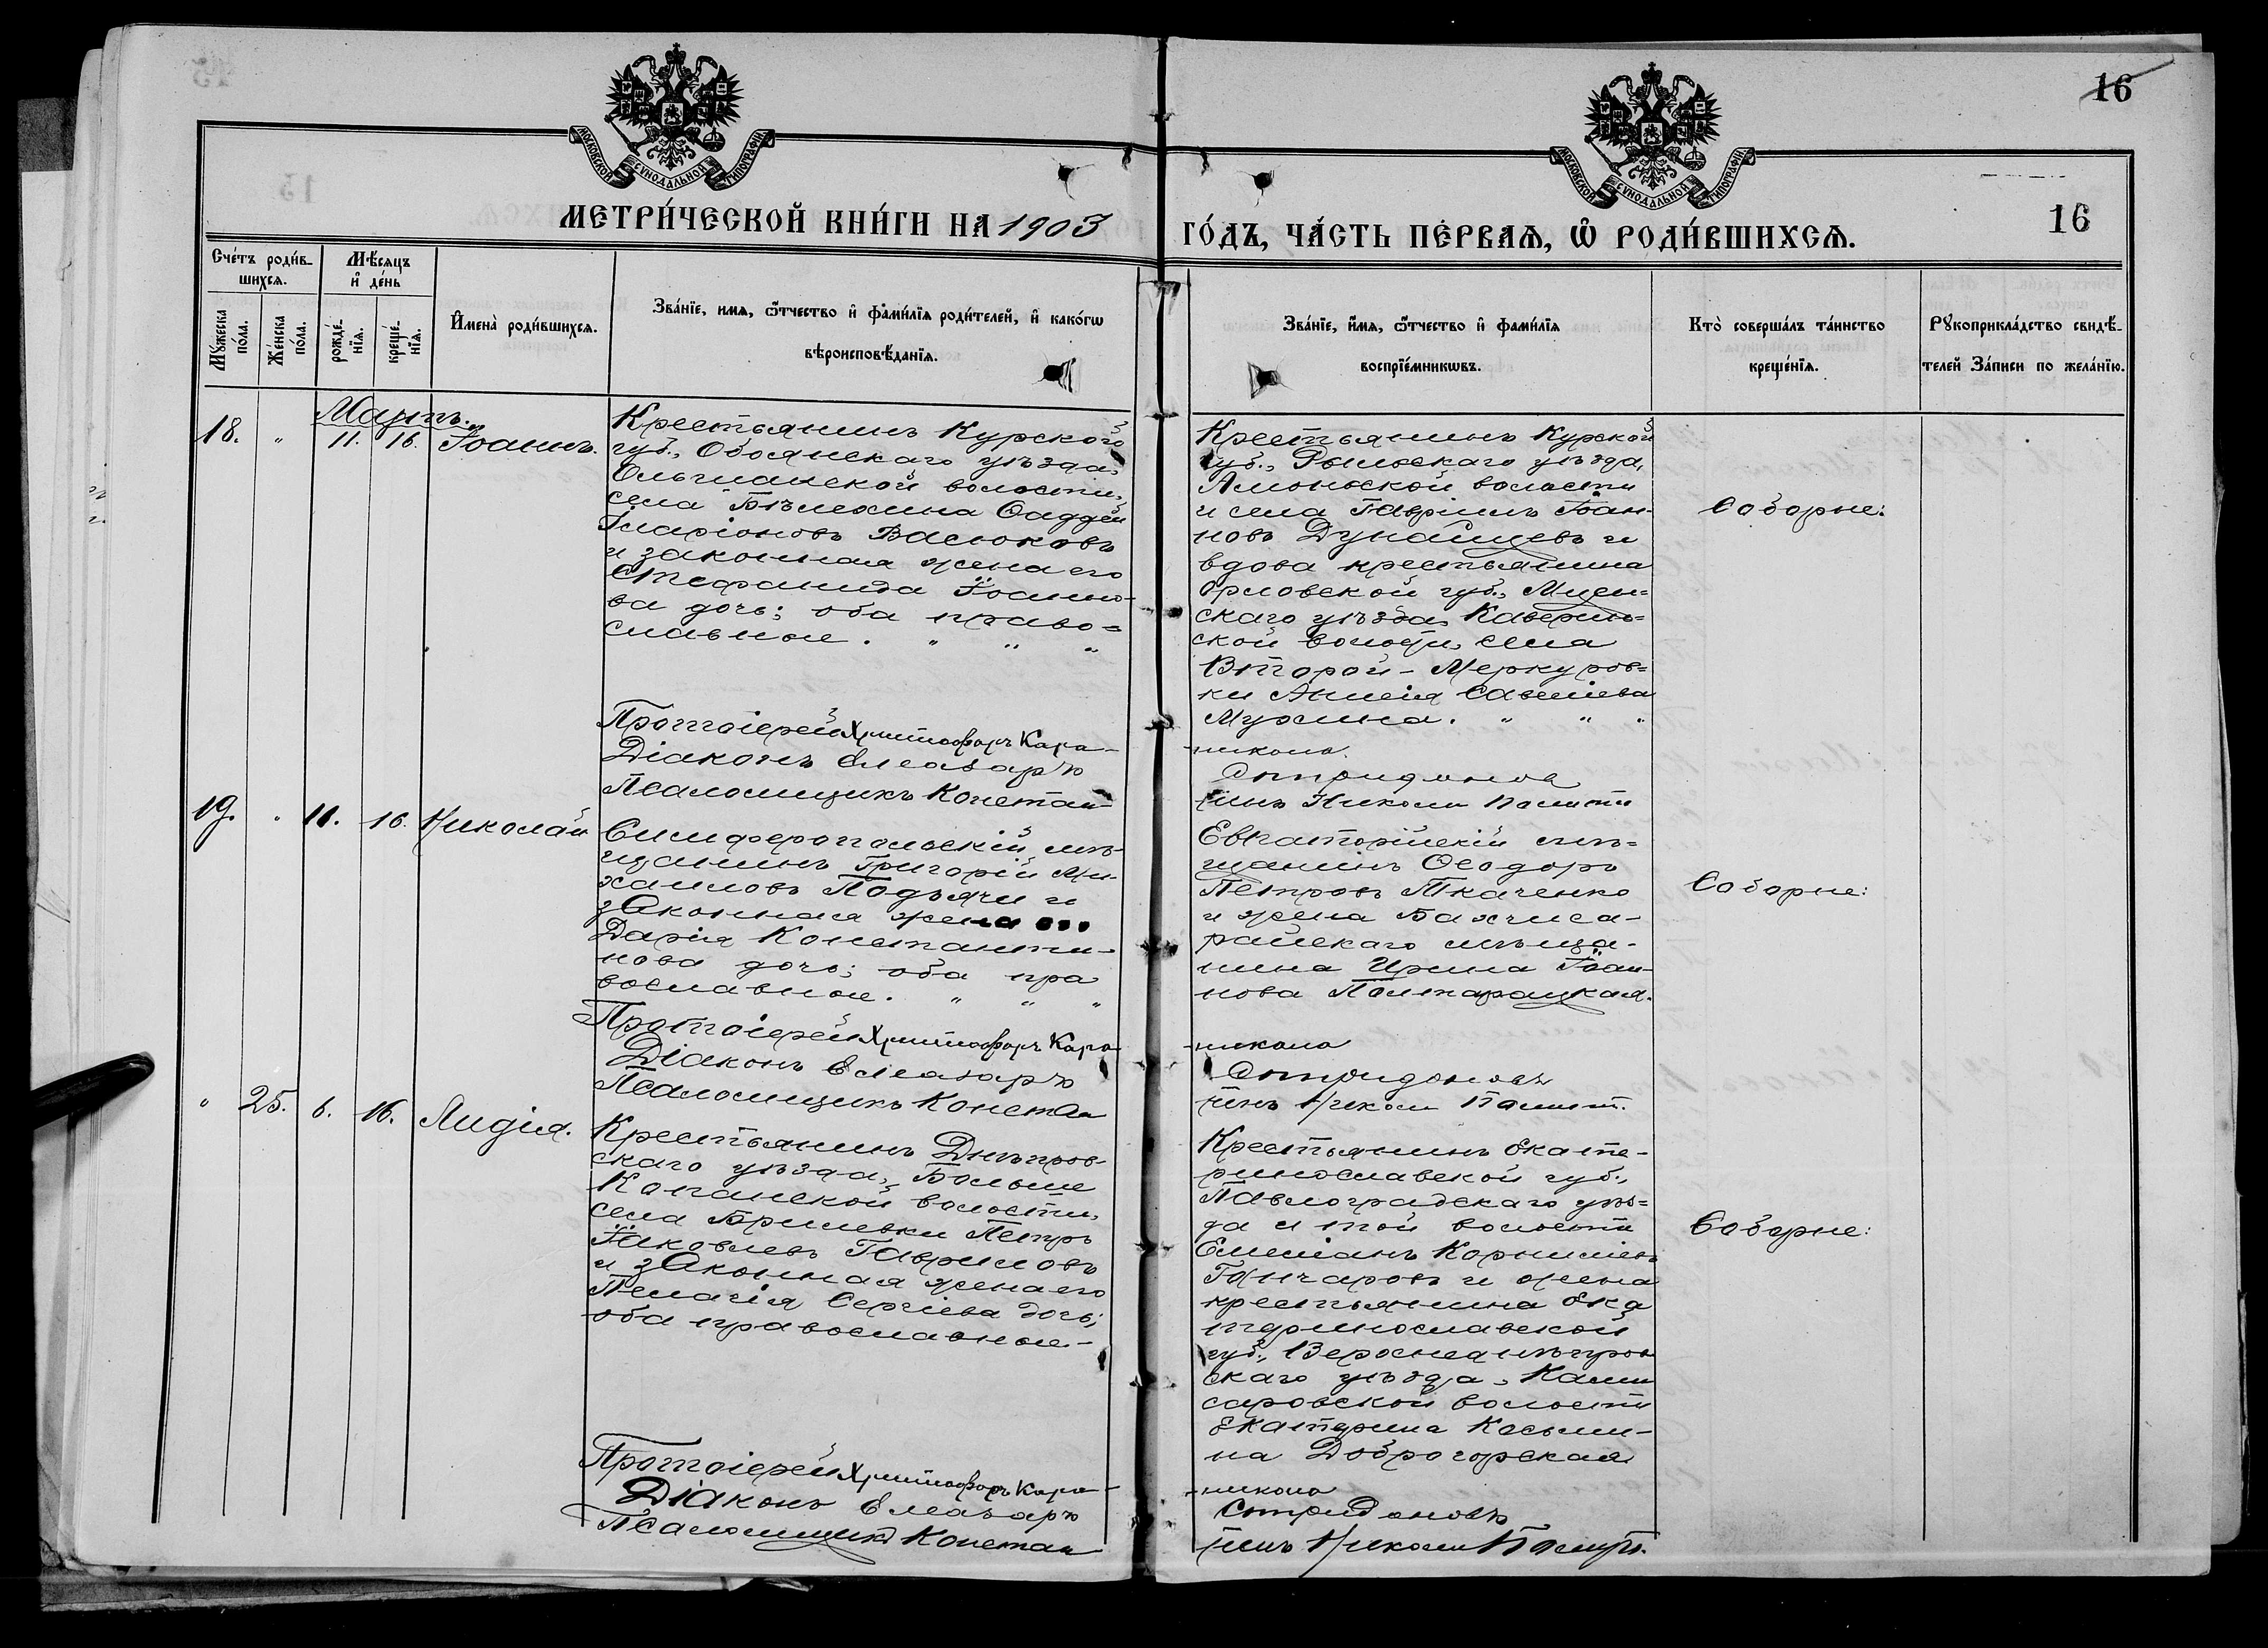 16
МОСКОВСКОЙ СѴНОДАЛЬНОЙ ТИПОГРАФІИ
МОСКОВСКОЙ СѴНОДАЛЬНОЙ ТИПОГРАФІИ
МЕТРИ́ЧЕСКОЙ КНИ́ГИ НА 1903 ГО́ДЪ, ЧА́СТЬ ПЕ́РВАѦ, Ѡ҆ РОДИ́ВШИХСѦ.
16
Сче́тъ роди́в-
шихсѧ.
Мꙋ́жеска по́ла.
Же́нска по́ла.
Мѣ́сѧцъ
и҆ де́нь
рожде́-
нїѧ.
креще́-
нїѧ.
И҆мена̀ роди́вшихсѧ.
Зва́нїе, имѧ, ѻ҆́тчество и҆ фами́лїѧ роди́телей, и҆ како́гѡ
вѣроисповѣ́данїѧ.
Зва́нїе, и҆́мѧ, ѻ҆́тчество и҆ фами́лїѧ
воспрїе́мникѡвъ.
Кто̀ соверша́лъ та́инство
креще́нїѧ.
Рꙋкоприкла́дство свидѣ́-
телей За́писи по жела́нїю.
Мартъ.
18. " 11. 16. Іоаннъ.
Крестьянинъ Курской
губ., Обоянскаго уѣзда,
Ольшанской волости,
села Бѣлехина Ѳаддей
Иларіоновъ Васюковъ
и законная жена его
Стефанида Іоанно-
ва дочь; оба право=
славные. " " "
Протоіерей Христофоръ Кара-
Діаконъ Елеазаръ
Псаломщикъ Констан-
Крестьянинъ Курской
губ., Рыльскаго уѣзда,
Амонской волости
и села Гавріилъ Іоан-
новъ Дунайцевъ и
вдова крестьянина
Орловской губ., Мцен=
скаго уѣзда,
ской волости, села
Второй-Меркуров=
ки Анисія Савеліева
Мухина. " " "
никола
Спиридоновъ
тинъ Никол
Соборне:
19. " 11. 16. Николай
Симферопольскій мѣ-
щанинъ Григорій Ми-
хаиловъ Подъячи и
законная жена его
Дарія Константи-
нова дочь; оба пра
вославные. " " "
Протоіерей Христофоръ Кара-
Діаконъ Елеазаръ
Псаломщикъ Констан
Евпаторійскій мѣ=
щанинъ Ѳеодоръ
Петровъ Ткаченко
и жена Бахчиса-
райскаго мѣща-
нина Ирина Іоан-
нова Полтарацкая.
никола
Спиридоновъ
тинъ Никол
Соборне:
" 25. 6. 16. Лидія.
Крестьянинъ Днѣпров-
скаго уѣзда, Больше
Копанской волости,
села Брилевки Петръ
Іаковлевъ Гавриловъ
и законная жена его
Пелагія Сергіева дочь;
оба православные-
Протоіерей Христофоръ Кара-
Діаконъ Елеазаръ
Псаломщикъ Констан
Крестьянинъ Екате-
ринославской губ.,
Павлоградскаго уѣз=
да и той волости
Емеліанъ Корнилiевъ
Гончаровъ и жена
крестьянина Ека
теринославской
губ., Верхнеднѣпров
скаго уѣзда, Коми
саровской волости
Екатерина Косьми-
на Доброгорская
никола
Спиридоновъ
тинъ Никол
Соборне: